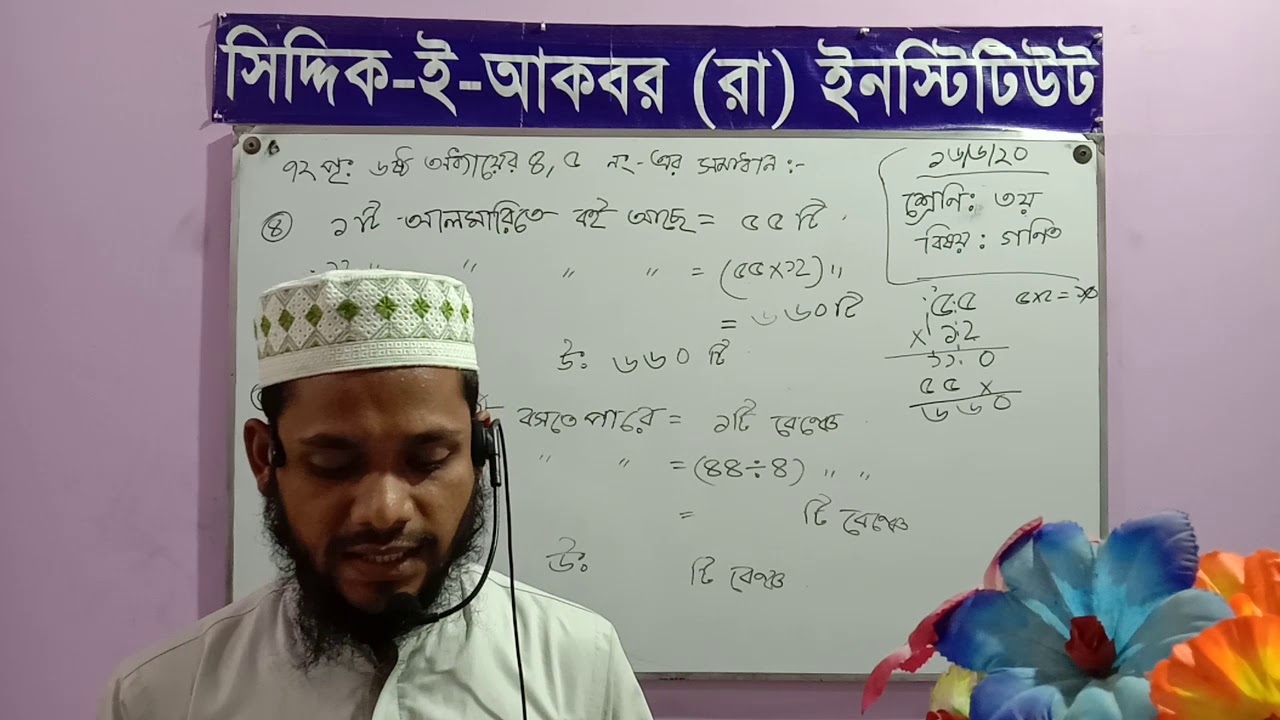 সিদ্দিক-ই-আকবর (রা) ইনস্টিটিউট
৭২ পৃ: ৬ষ্ঠ অধ্যায়ের ৪, ৫ নং-এর সমাধান :-
১৬/৬/২০
শ্রেণি: ৩য়
বিষয় : গণিত
৪ ১টি আলমারিতে বই আছে = ৫৫ টি
১২ " " " " = (৫৫×১২) "
= ৬৬০ টি
উ: ৬৬০ টি
৫৫ ৫×২=১০
× ১২
১১০
৫৫ ×
৬৬০
বসতে পারে = ১টি বেঞ্চে
" " = (৪৪÷৪) " "
= টি বেঞ্চে
উ: টি বেঞ্চে